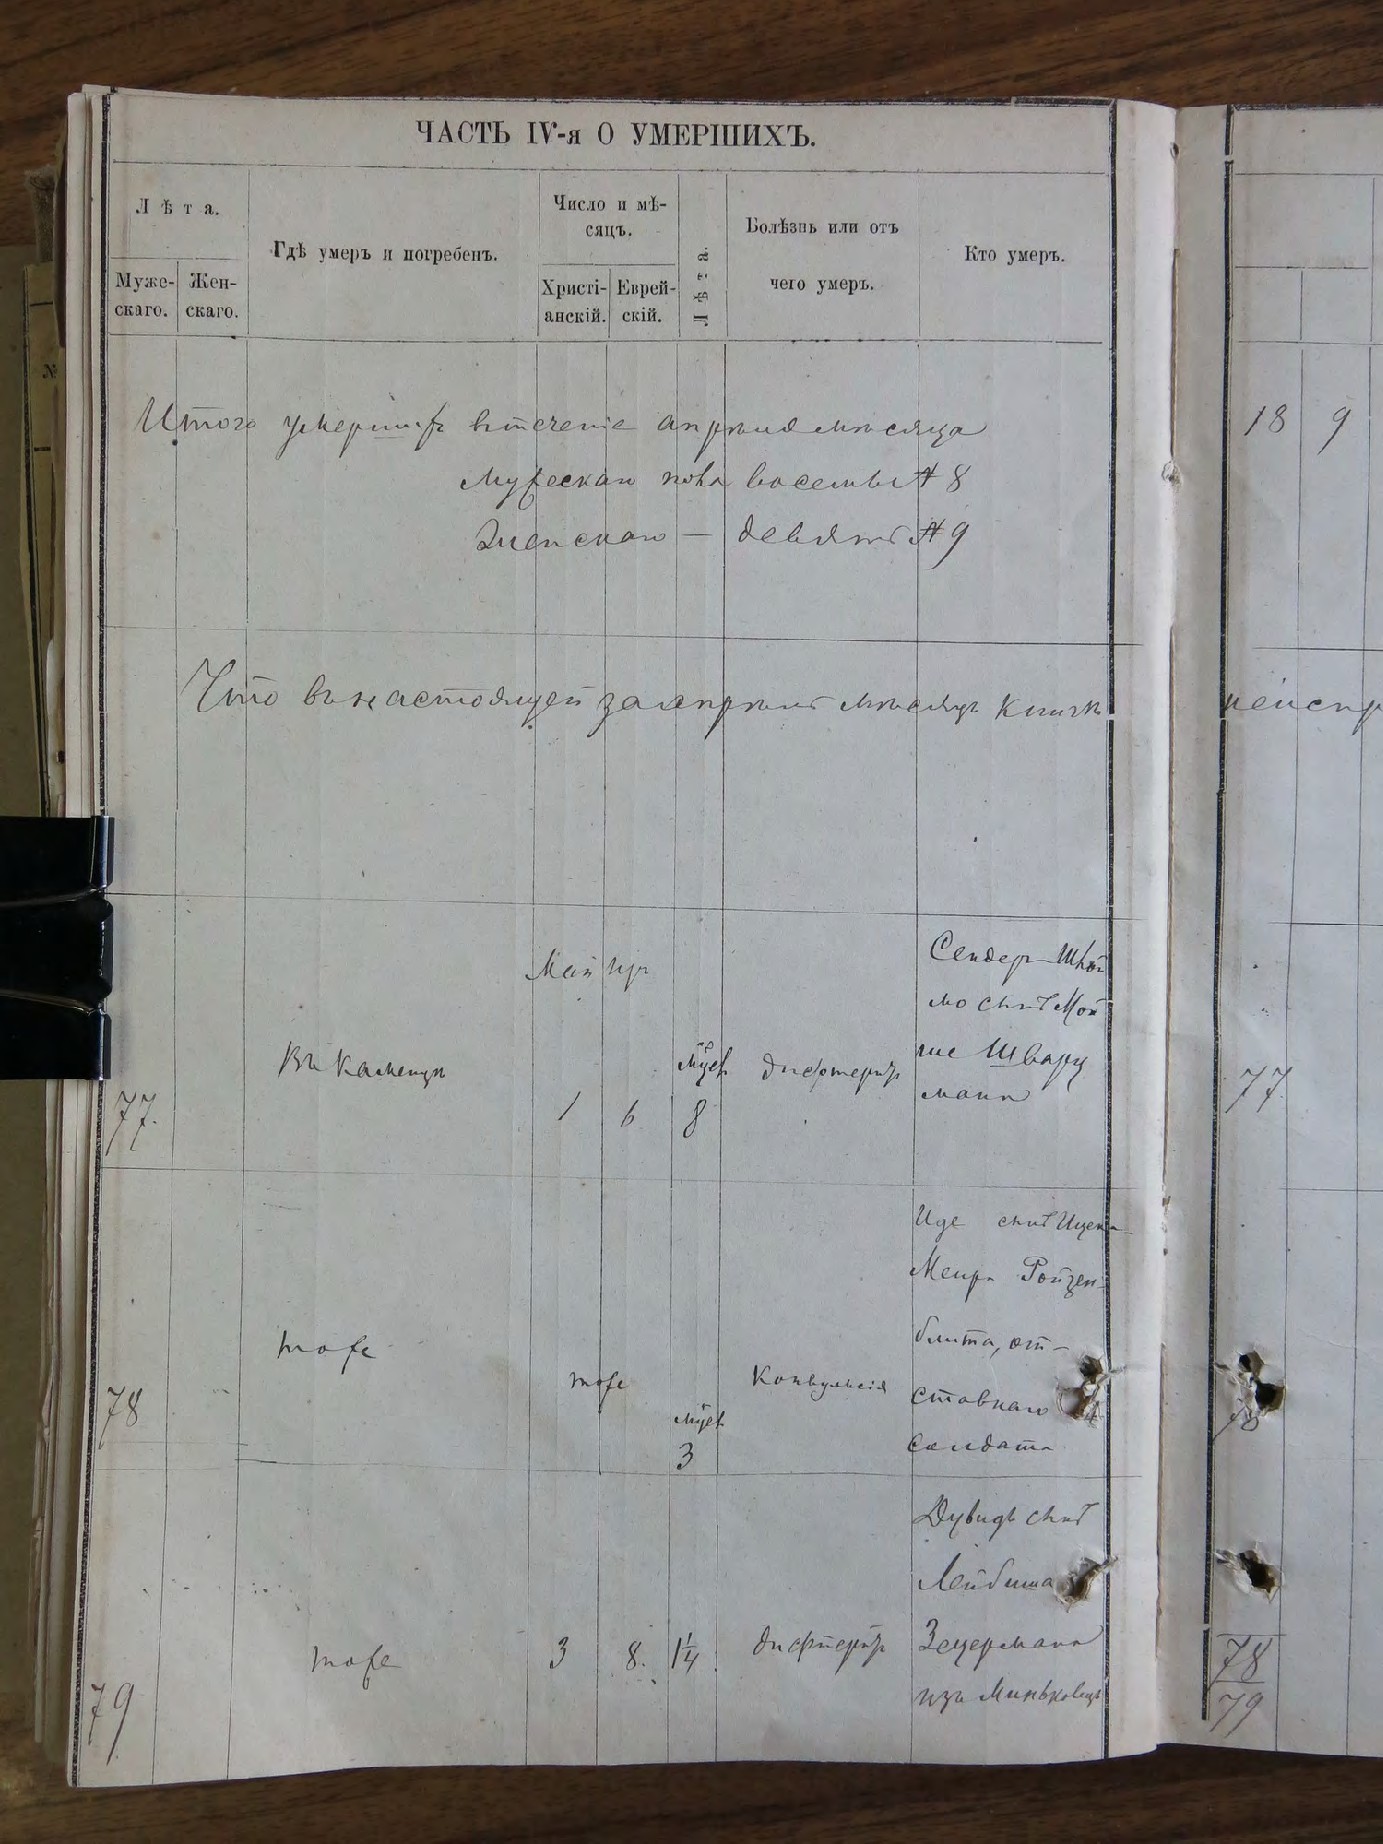 ЧАСТЬ IV-я О УМЕРШИХЪ.
Лѣта.
Муже-
скаго.
Жен-
скаго.
Гдѣ умеръ и погребенъ.
Число и мѣ-
сяцъ.
Христі-
анскій.
Еврей-
скій.
Лѣта.
Болѣзнь или отъ
чего умеръ.
Кто умеръ.
Итого умершихъ втеченіе апрѣля мѣсяца
мужескаго пола восемь # 8
Женскаго — девять # 9
18 9
Что въ настоящей за апрѣль мѣсяцъ книгѣ
Май Iиръ
77.
Въ Каменцѣ
1
6
8
дифтеритъ
Сендер-Шлй
мо сынъ Мой
ше Шварц
мана
77
78
тоже
тоже
3
Конвульсія
Иде сынъ Ицека
Меира Ройзен-
блита, от-
ставнаго
солдата
79
тоже
3
8.
1 1/4
дифтеритъ
Дувидъ сынъ
Лейбиша
Зецермана
изъ Миньковецъ
78
79